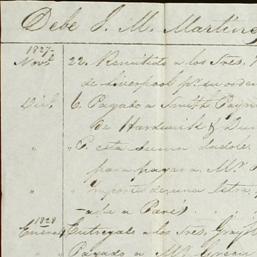 Debe J. M. Martinez
1827,
Novre 22. Remitido a los Sres.
de Liverpool pr. su orden
Dice 6. Pagado a Smith Payne
de Hardwick &
" P. esta suma dadole
" para pagar a Mr.
" Importe de una letra
a la a Paris
1828
Enero 4 Entregado a los Sres.
Pagado a Mr. Green